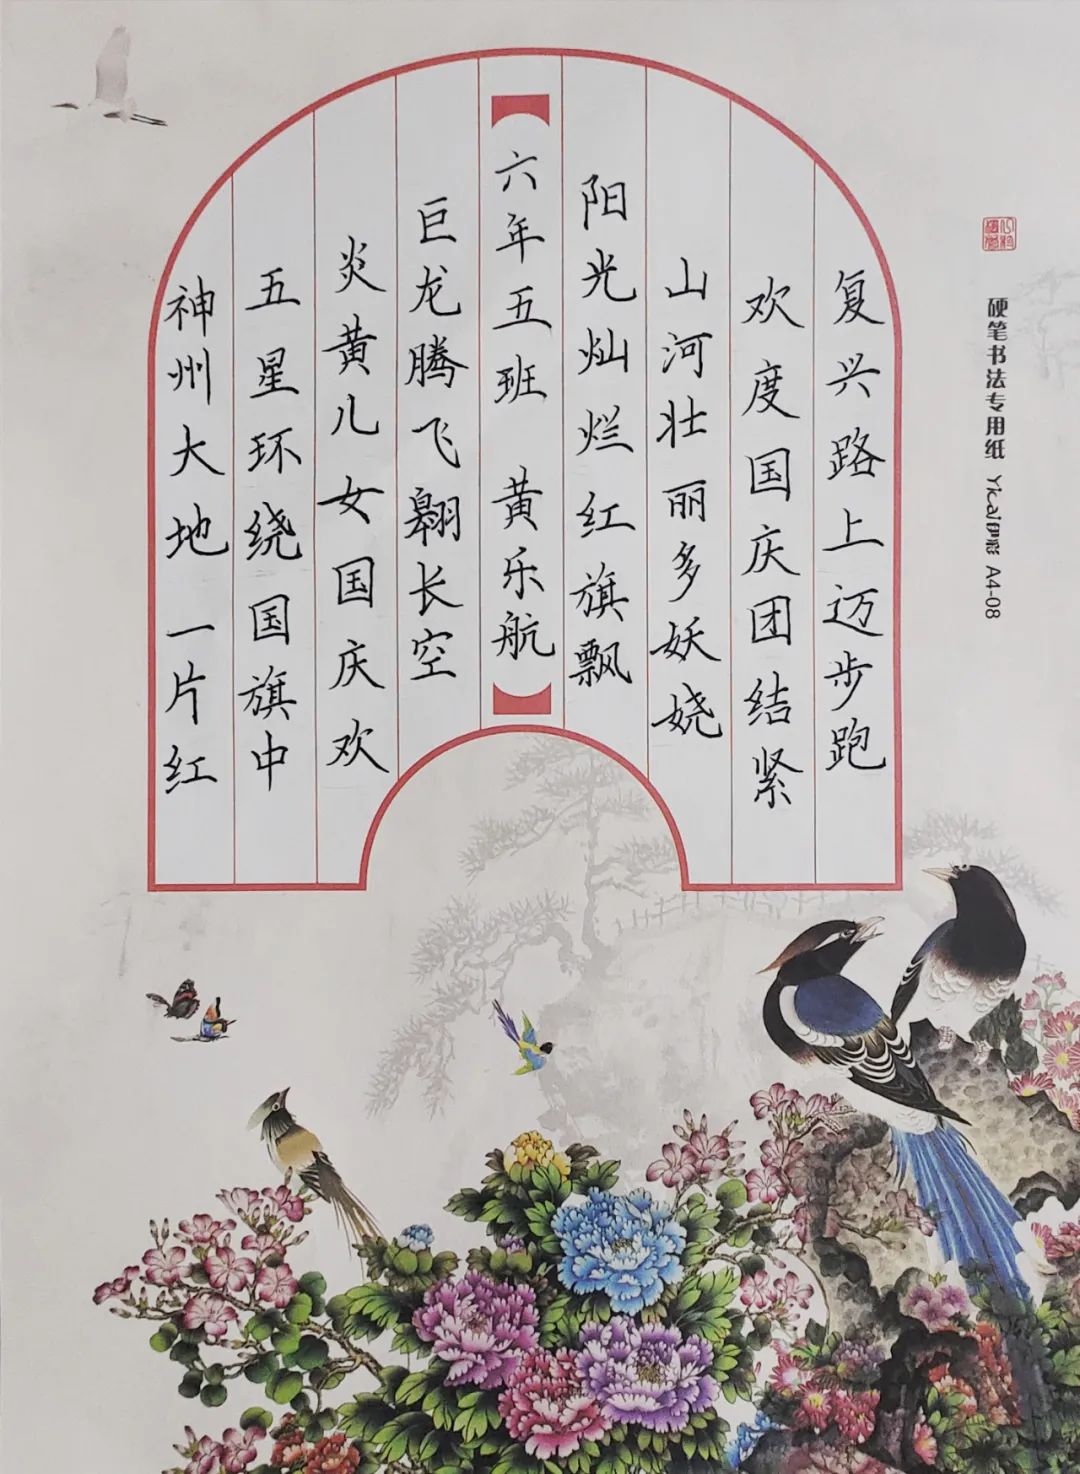 神州大地一片红
五星环绕国旗中
炎黄儿女国庆欢
巨龙腾飞翱长空
六年五班 黄乐航
阳光灿烂红旗飘
山河壮丽多妖娆
欢度国庆团结紧
复兴路上迈步跑
硬笔书法专用纸 Yicai伊彩 A4-08